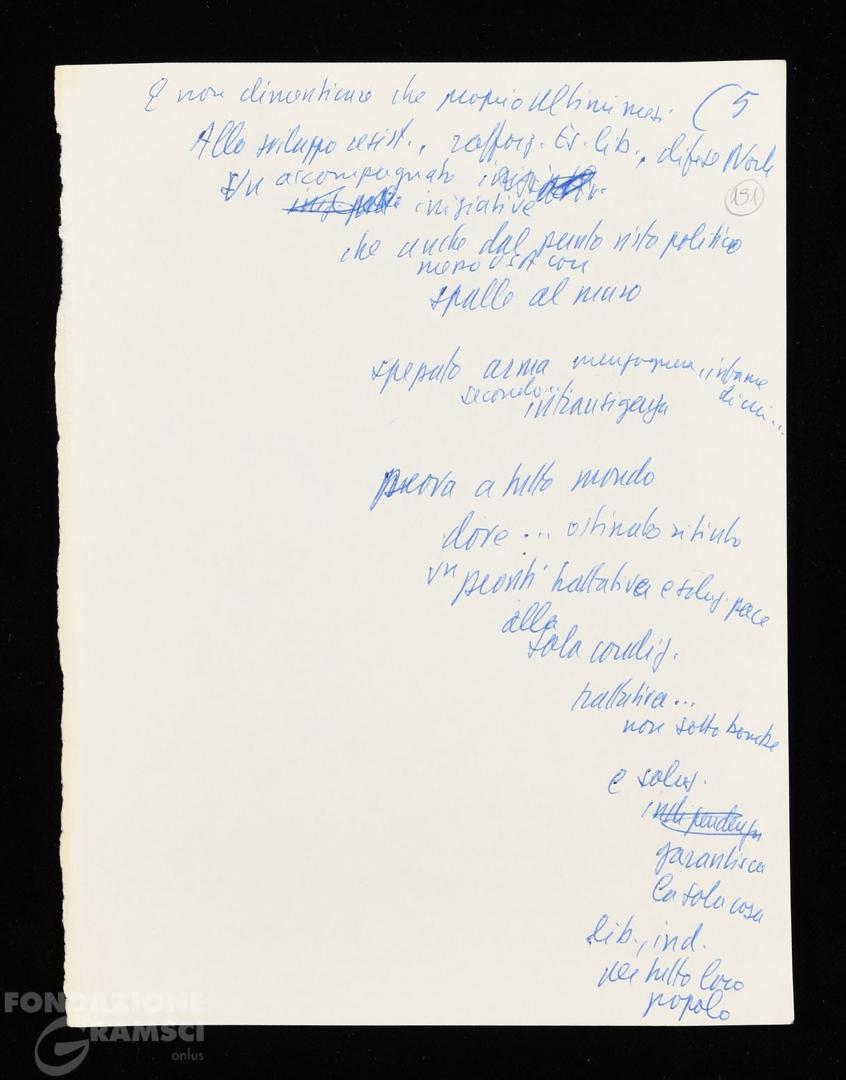 E non dimenticare che proprio ultimi mesi. (5
Allo sviluppo resist., rafforz. Es. lib., difesa Nord
151
accompagnato
iniziative
che anche dal punto vista politico
messo USA con
spalle al muro
spezzato arma menzognera, infame
secondo... di cui...
intransigenza
prova a tutto mondo
dove... ostinato rifiuto
pronti trattativa e soluz. pace
alla
sola condiz.
trattativa...
non sotto bombe
e soluz.
indipendenza
garantisca
la sola cosa
lib., ind.
per tutto loro
popolo
FONDAZIONE
GRAMSCI
onlus